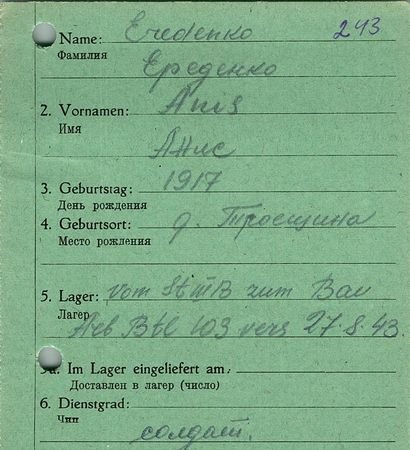 Name: Eredenko 243
Фамилия
Ереденко
2. Vornamen: Anis
Имя
Анис
3. Geburtstag: 1917
День рождения
4. Geburtsort: д. Тросщина
Место рождения
5. Lager: vom St III B zum Bau
Лагер
Arb Btl 103 vers 27.8.43.
5a. Im Lager eingeliefert am:
Доставлен в лагер (число)
6. Dienstgrad:
Чин
солдат.